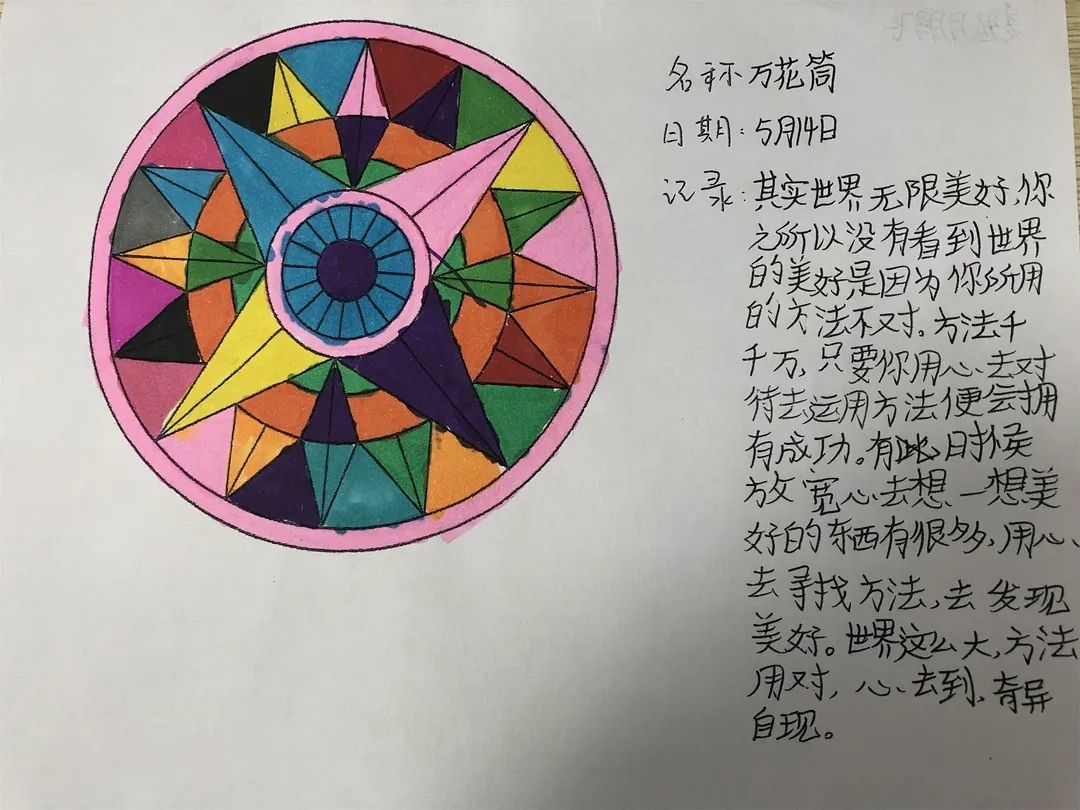 名称万花筒
日期:5月14日
记录:其实世界无限美好,你
之所以没有看到世界
的美好是因为你所用
的方法不对。方法千
千万,只要你用心去对
待去运用方法便会拥
有成功。有此时候
放宽心去想一想美
好的东西有很多,用心
去寻找方法,去发现
美好。世界这么大,方法
用对,心去到,奇异
自现。